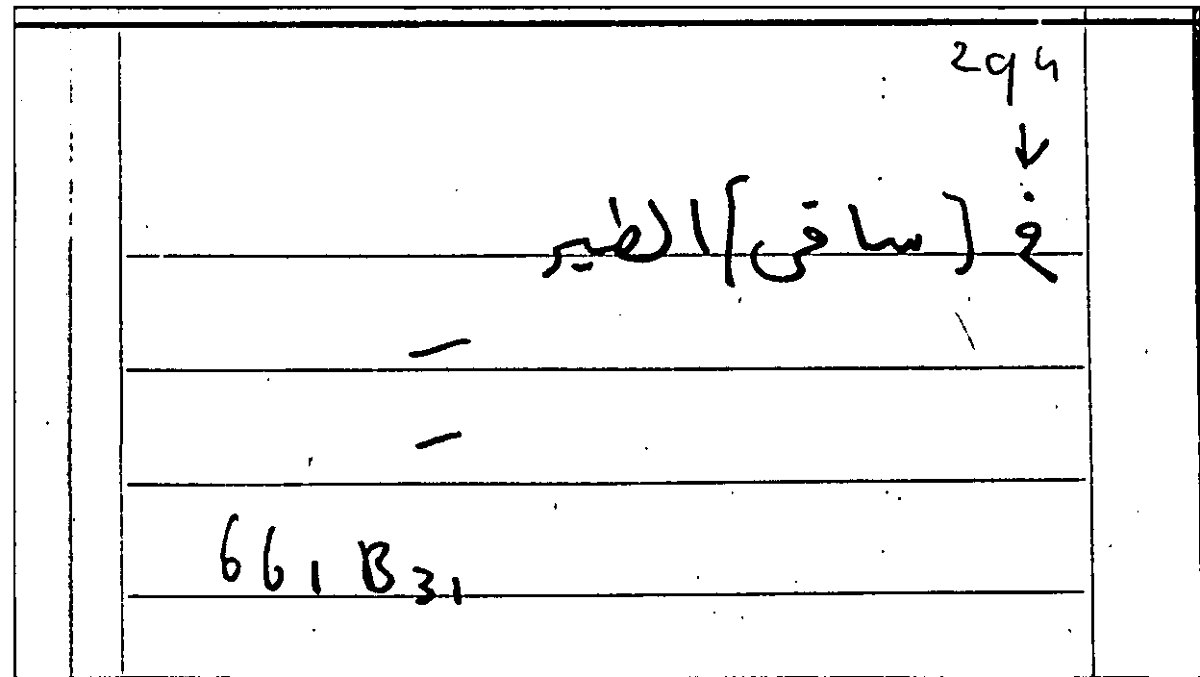 294
↓
خ [ساقى] الطير
—
—
661 B31